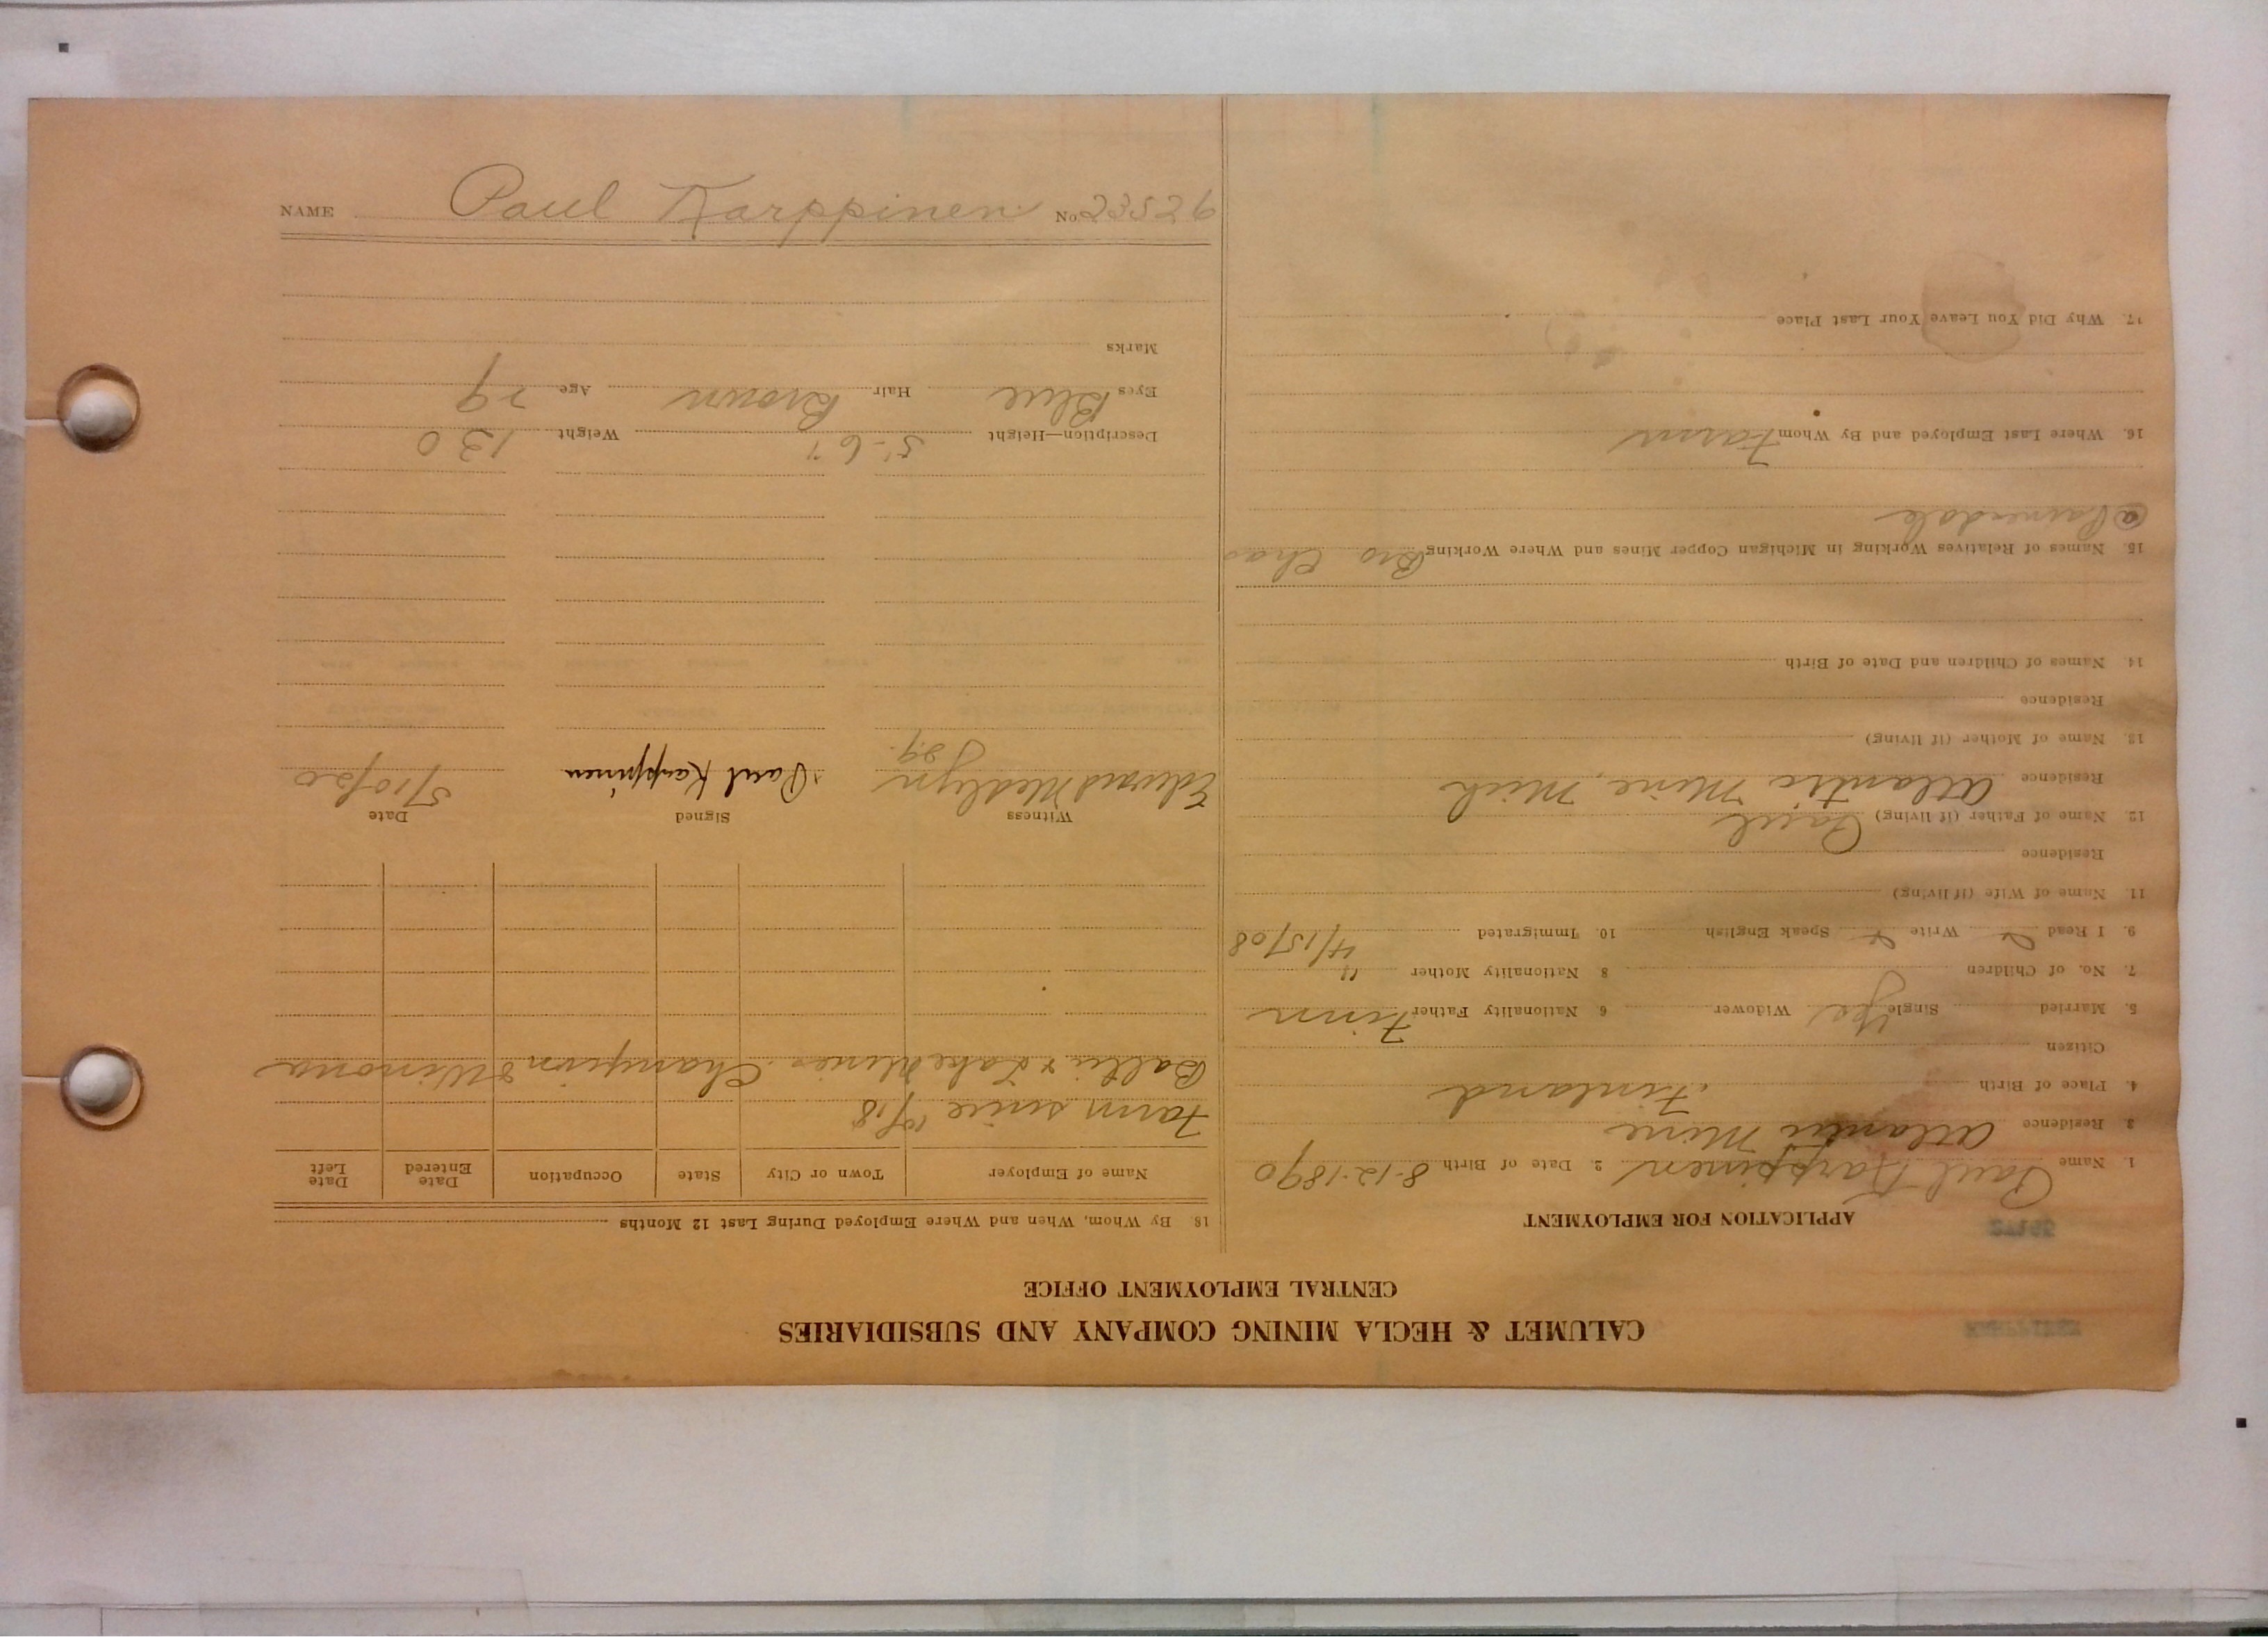 CALUMET & HECLA MINING COMPANY AND SUBSIDIARIES
CENTRAL EMPLOYMENT OFFICE
APPLICATION FOR EMPLOYMENT
1. Name Paul Karppinen 2. Date of Birth 8-12-1890
3 Residence Atlantic Mine
4. Place of Birth Finland
Citizen
5. Married Single Yes Widower 6 Nationality Father Finn
7. No. of Children 8 Nationality Mother "
9. I Read Write Speak English 10. Immigrated 4/15/08
11. Name of Wife (if living)
Residence
12. Name of Father (if living) Paul
Residence Atlantic Mine, Mich
13. Name of Mother (if living)
Residence
14. Names of Children and Date of Birth
15. Names of Relatives Working in Michigan Copper Mines and Where Working Bro Chas
@ Painesdale
16. Where Last Employed and By Whom Farm
17. Why Did You Leave Your Last Place
18 By Whom, When and Where Employed During Last 12 Months
Name of Employer Town or City State Occupation Date Entered Date Left
Farm since 10/18
Baltic & Lake Mines. Champion & Winona
Witness Signed Date
Edward Medlyn Paul Karppinen 5/10/20
Description—Height 5'-6" Weight 130
Eyes Blue Hair Brown Age 29
Marks
NAME Paul Karppinen No. 23526